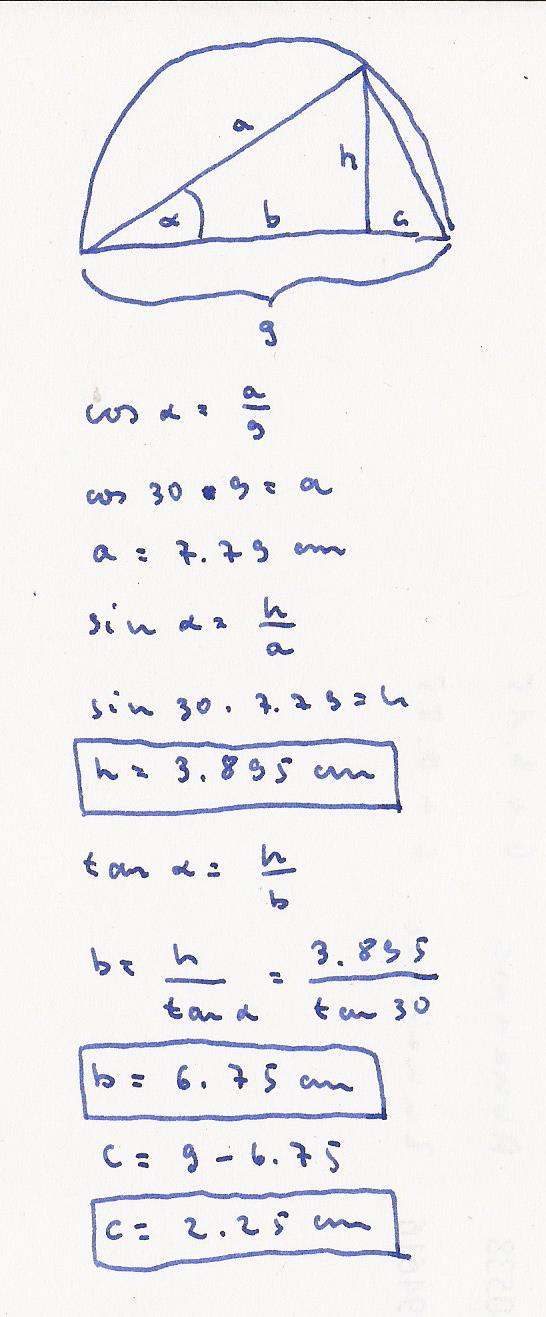 a
h
α b c
9
cos α = a/9
cos 30 • 9 = a
a = 7.79 cm
sin α = h/a
sin 30 . 7.79 = h
h = 3.895 cm
tan α = h/b
b = h/tan α = 3.895/tan 30
b = 6.75 cm
c = 9 - 6.75
c = 2.25 cm